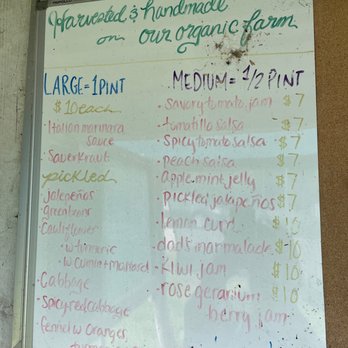 Harvested & handmade
on our organic farm
LARGE = 1 PINT
$10 each
· Italian marinara
sauce
· Sauerkraut
pickled
jalepeños
green beans
Cauliflower
· w turmeric
· w cumin + mustard
· Cabbage
· Spicy red cabbage
fennel w oranges
MEDIUM = 1/2 PINT
· savory tomato jam $7
· tomatillo salsa $7
· Spicy tomato salsa $7
· peach salsa $7
· apple mint jelly $7
· pickled jalapeños $7
· lemon curd $10
· dads marmalade $10
· kiwi jam $10
· rose geranium $10
berry jam